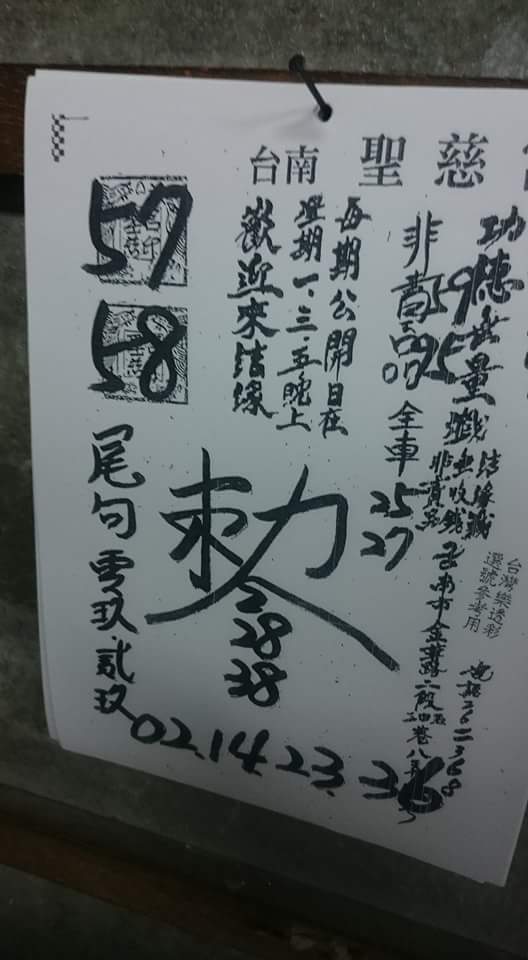 台南 聖慈
功德無量
59
95
結緣籤
無收錢
非賣品
台灣樂透彩
選號參考用
台南市金華路二段
非賣品
全車
25
27
每期公開日在
星期一、三、五晚上
歡迎來結緣
57
58
尾句
零玖貳玖
敕令
28
38
02.14.23.36